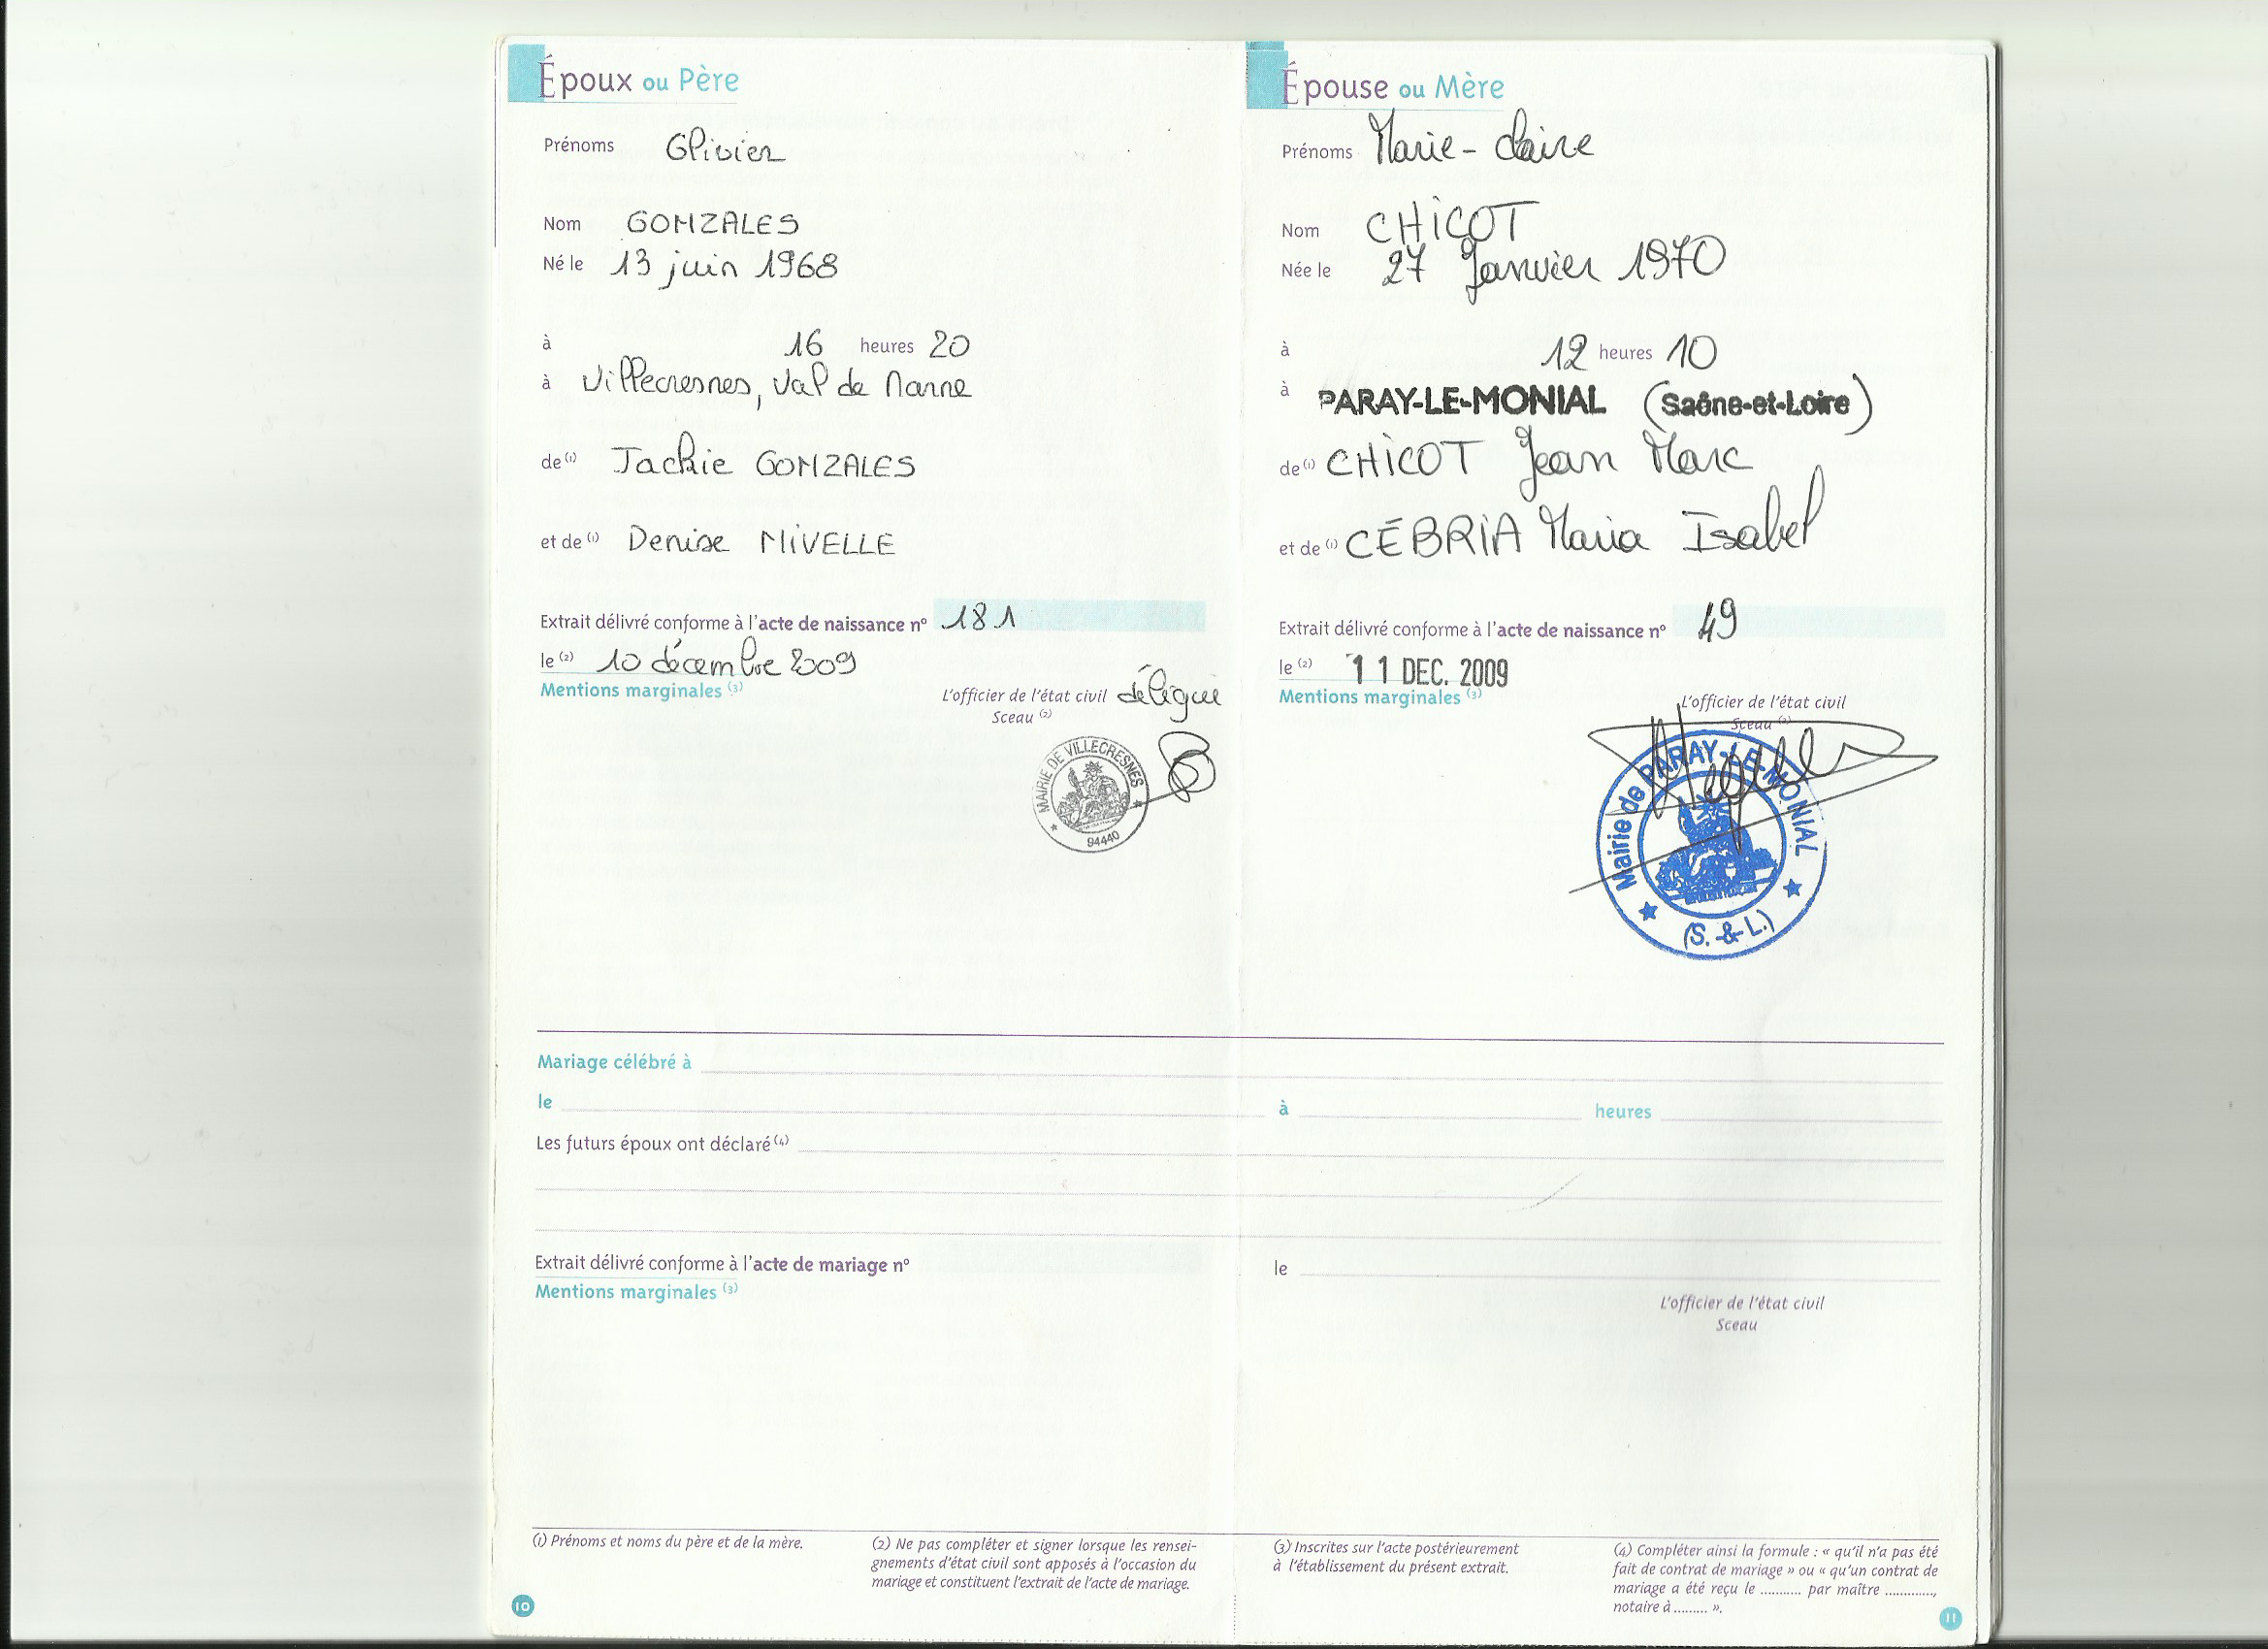 Époux ou Père
Prénoms Olivier
Nom GONZALES
Né le 13 juin 1968
à 16 heures 20
à Villecresnes, Val de Marne
de (1) Jackie GONZALES
et de (1) Denise NIVELLE
Extrait délivré conforme à l'acte de naissance n° 181
le (2) 10 décembre 2009
Mentions marginales (3)
L'officier de l'état civil délégué
Sceau (2)
MAIRIE DE VILLECRESNES
94440
Épouse ou Mère
Prénoms Marie-Claire
Nom CHICOT
Née le 27 Janvier 1970
à 12 heures 10
à PARAY-LE-MONIAL (Saône-et-Loire)
de (1) CHICOT Jean Marc
et de (1) CÉBRIA Maria Isabel
Extrait délivré conforme à l'acte de naissance n° 49
le (2) 11 DEC. 2009
Mentions marginales (3)
L'officier de l'état civil
Sceau (2)
Mairie de PARAY-LE-MONIAL
(S. & L.)
Mariage célébré à
le à heures
Les futurs époux ont déclaré (4)
Extrait délivré conforme à l'acte de mariage n° le
Mentions marginales (3)
L'officier de l'état civil
Sceau
(1) Prénoms et noms du père et de la mère.
(2) Ne pas compléter et signer lorsque les rensei-
gnements d'état civil sont apposés à l'occasion du
mariage et constituent l'extrait de l'acte de mariage.
(3) Inscrites sur l'acte postérieurement
à l'établissement du présent extrait.
(4) Compléter ainsi la formule : « qu'il n'a pas été
fait de contrat de mariage » ou « qu'un contrat de
mariage a été reçu le ........... par maître .............,
notaire à ......... ».
10
11